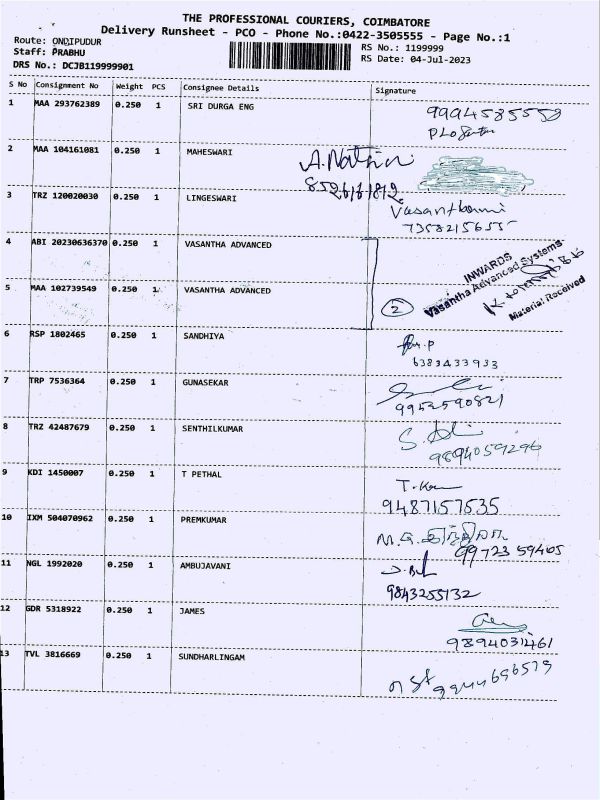 THE PROFESSIONAL COURIERS, COIMBATORE
Delivery Runsheet - PCO - Phone No.:0422-3505555 - Page No.:1
Route: ONDIPUDUR
RS No.: 1199999
Staff: PRABHU
RS Date: 04-Jul-2023
DRS No.: DCJB119999901
S No Consignment No Weight PCS Consignee Details Signature
1 MAA 293762389 0.250 1 SRI DURGA ENG
2 MAA 104161081 0.250 1 MAHESWARI A.Nathin
3 TRZ 120020030 0.250 1 LINGESWARI
7358215655
4 ABI 20230636370 0.250 1 VASANTHA ADVANCED
INWARDS
Vasantha Advanced Systems
Material Received
5 MAA 102739549 0.250 1 VASANTHA ADVANCED 2
6 RSP 1802465 0.250 1 SANDHIYA
6383433933
7 TRP 7536364 0.250 1 GUNASEKAR
9952590821
8 TRZ 42487679 0.250 1 SENTHILKUMAR
9894059296
9 KDI 1450007 0.250 1 T PETHAL
9487157535
10 IXM 504070962 0.250 1 PREMKUMAR
99723 59405
11 NGL 1992020 0.250 1 AMBUJAVANI
9843255132
12 GDR 5318922 0.250 1 JAMES
9894031461
13 TVL 3816669 0.250 1 SUNDHARLINGAM